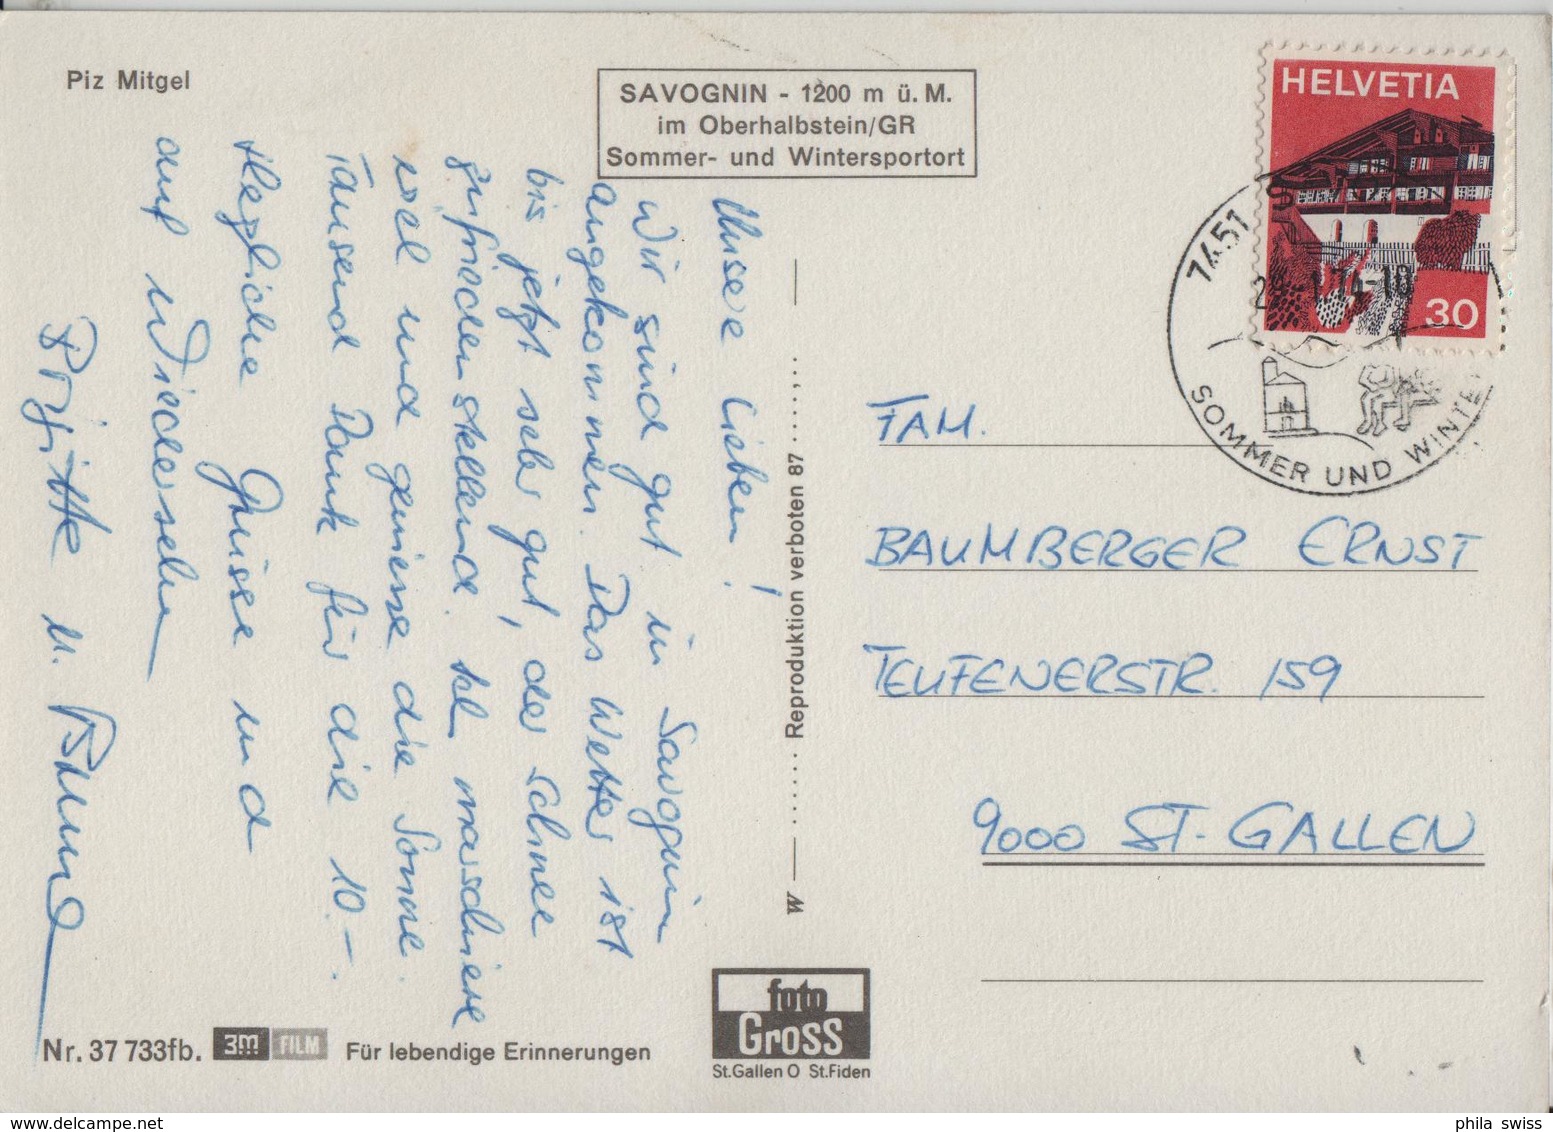 Piz Mitgel
SAVOGNIN - 1200 m ü. M.
im Oberhalbstein/GR
Sommer- und Wintersportort
HELVETIA
30
7451
SOMMER UND WINTE
Unsere Lieben!
Wir sind gut in Savognin
angekommen. Das Wetter ist
bis jetzt sehr gut, der Schnee
zufriedenstellend. Ich marschiere
viel und geniesse die Sonne.
Tausend Dank für die 10.-.
Herzliche Grüsse und
auf Wiedersehen
Brigitte u.
FAM.
BAUMBERGER ERNST
TEUFENERSTR. 159
9000 ST-GALLEN
W Reproduktion verboten 87
Nr. 37 733fb. 3M FILM Für lebendige Erinnerungen
foto
Gross
St.Gallen O St.Fiden
phila swiss